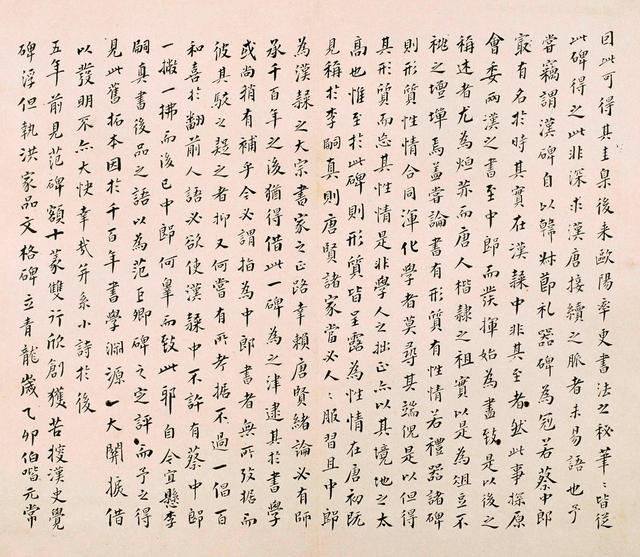 因此可得其圭臬後来歐陽率更書法之秘筆〻皆從
此碑得之此非深求漢唐接續之脈者未易語也予
嘗竊謂漢碑自以韓敕節礼器碑為冠若蔡中郎
最有名於時其實在漢隸中非其至者然此事探原
會委兩漢之書至中郎而發揮始為盡致是以後之
稱述者尤為烜赫而唐人楷隸之祖實以是為俎豆不
祧之壇墠焉葢嘗論書有形質有性情若禮器諸碑
則形質性情合同渾化學者莫尋其端倪是以但得
其形質而忘其性情是非學人之拙正亦以其境地之太
高也惟至於此碑則形質皆呈露為性情在唐初既
見稱於李嗣真則唐賢諸家當必人〻服習且中郎
為漢隸之大宗書家之正路幸賴唐賢緒論必有師
承千百年之後猶得借此一碑為之津逮其於書學
或尚稍有補乎今必謂指為中郎書者無所攷据而
彼其駁之疑之者抑又何嘗有所考据不過一倡百
和喜於翻前人語必欲使漢隸中不許有蔡中郎
一撇一拂而後已中郎何辠而致此耶自今宜懸李
嗣真書後品之語以為范巨卿碑之定評而予之得
見此舊拓本因於千百年書學淵源一大開振借
以發明不亦大快幸哉并系小詩於後
五年前見范碑額十篆雙行欣創獲苦搜漢史覺
碑淳但執洪家品文格碑立青龍歲乙卯伯喈元常